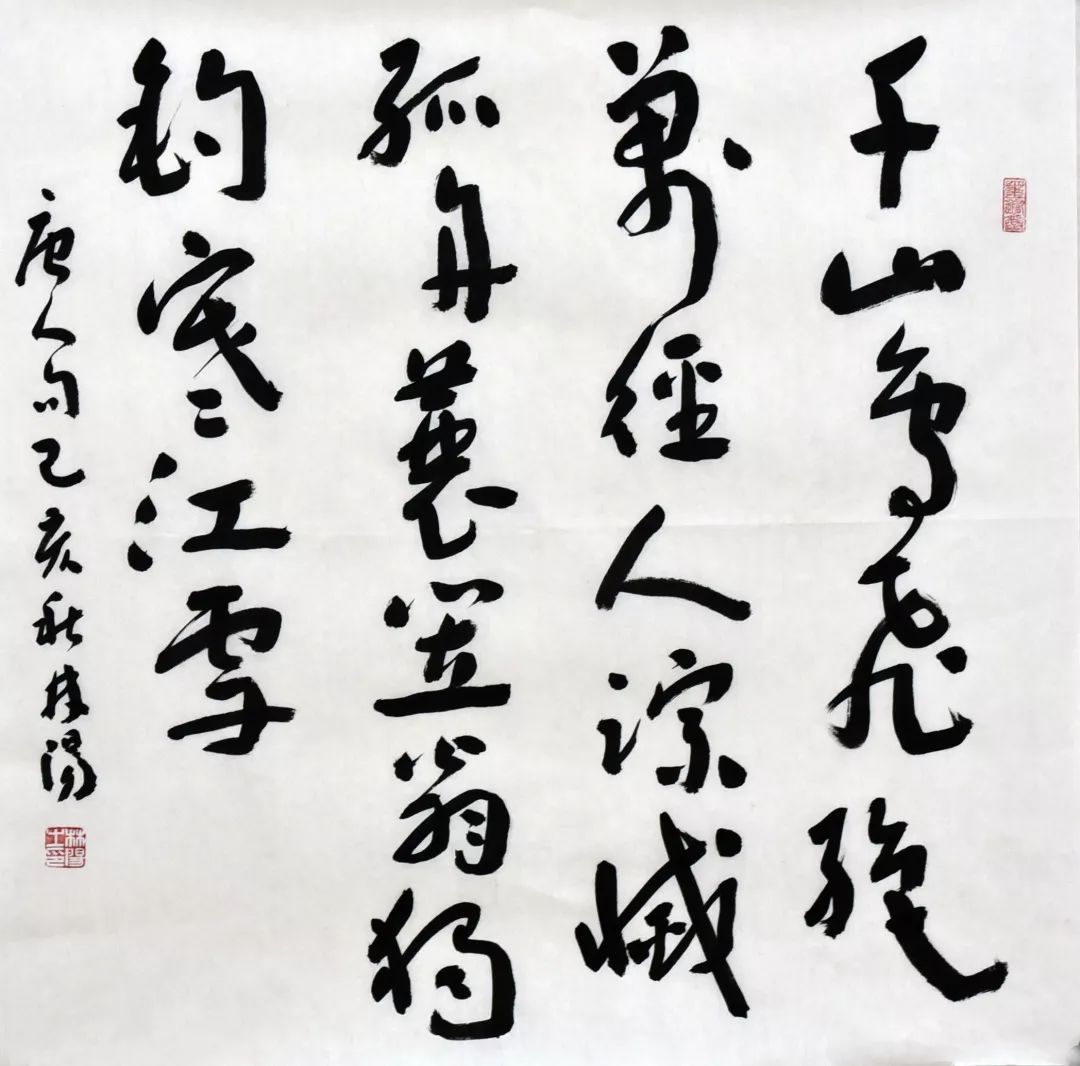 千山鳥飛絕
萬徑人踪滅
孤舟蓑笠翁獨
釣寒江雪
唐人句己亥秋林